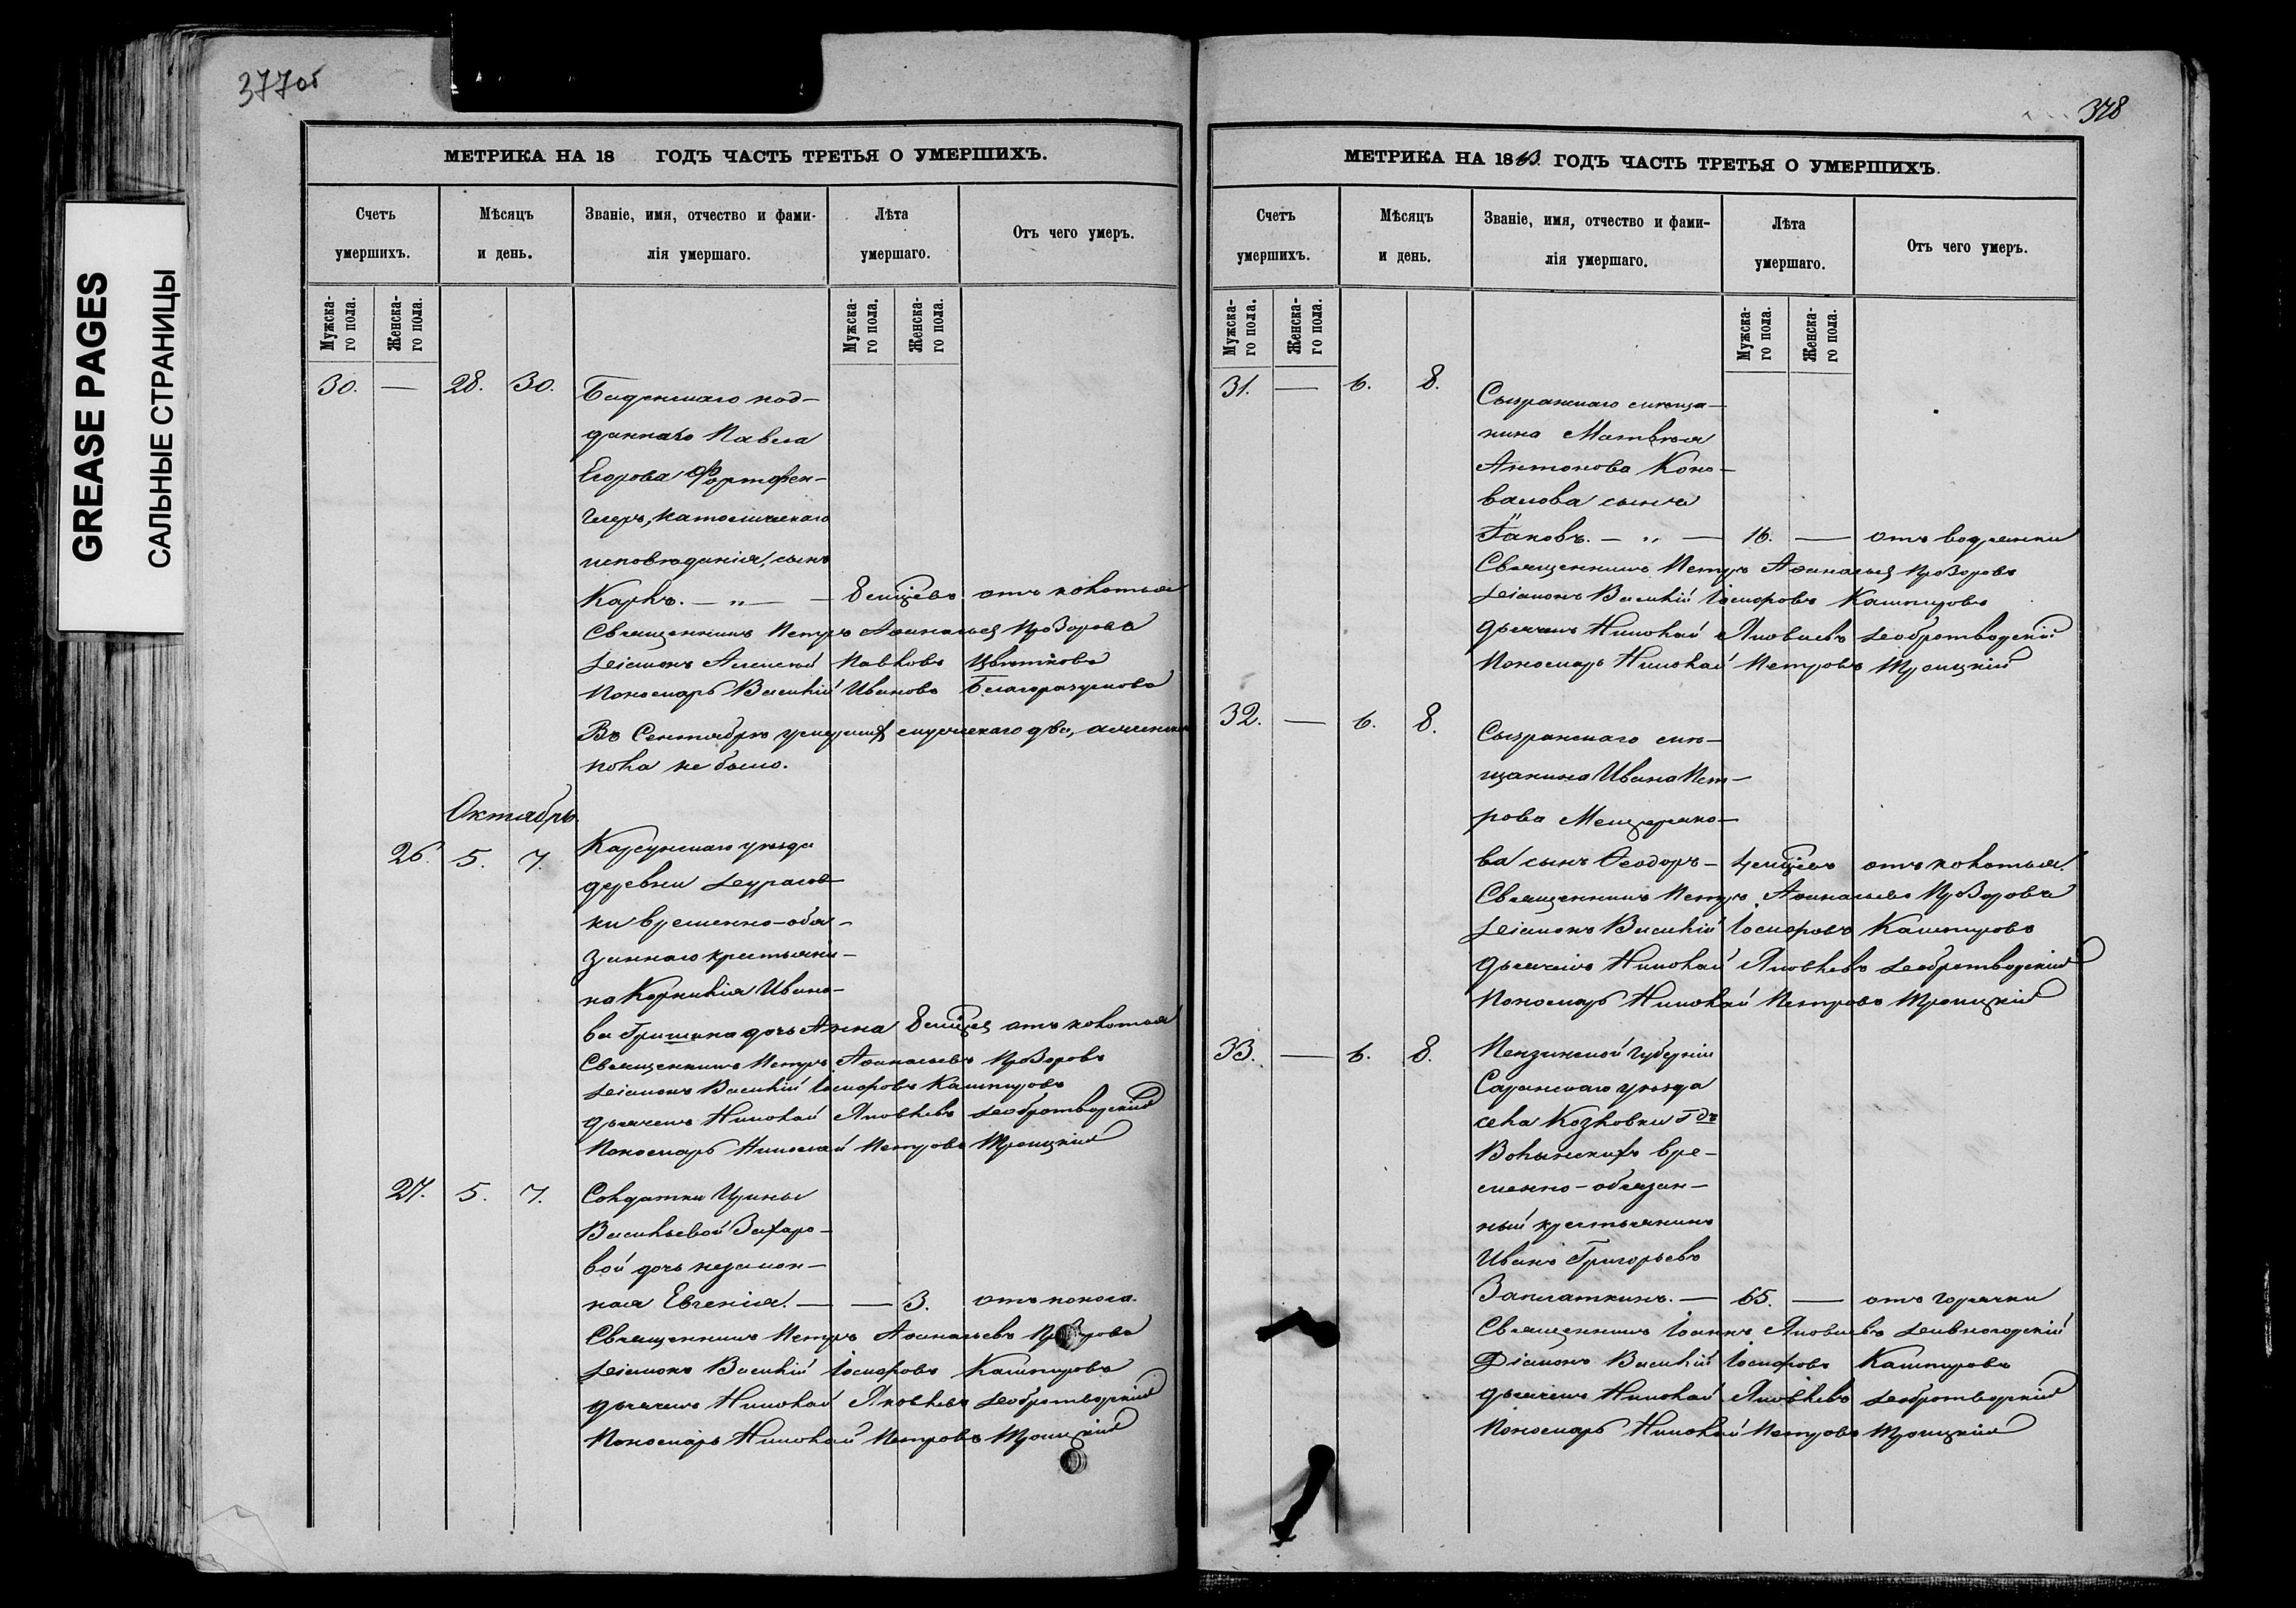 GREASE PAGES
САЛЬНЫЕ СТРАНИЦЫ
377об
МЕТРИКА НА 18 ГОДЪ ЧАСТЬ ТРЕТЬЯ О УМЕРШИХЪ.
Счетъ умершихъ.
Мѣсяцъ и день.
Званіе, имя, отчество и фами-
лія умершаго.
Лѣта умершаго.
Отъ чего умеръ.
Мужска-
го пола.
Женска-
го пола.
Мужска-
го пола.
Женска-
го пола.
30. — 28. 30. Баденскаго под-
даннаго Павла
Егорова Фортофен-
католическаго
исповѣданія, сынъ
Карлъ. — „ — 8 мѣсцевъ отъ колотья
Священникъ Петръ Аѳанасьев Прозоровъ
Діаконъ Алексѣй Павловъ Цвѣтковъ
Пономарь Василій Ивановъ Благоразумовъ
Въ Сентябрѣ умершихъ мужескаго два, а женскаго
пола не было.
Октябрь.
26. 5. 7. Карсунскаго уѣзда
деревни
ки временно-обя-
заннаго крестьяни-
на Корнилія Ивано-
ва Гришина дочь Анна 8 мѣсцев отъ колотья
Священникъ Петръ Аѳанасьевъ Прозоровъ
Діаконъ Василій Іосифовъ Кашпуровъ
Дьячекъ Николай Яковлевъ Добротворскій
Пономарь Николай Петровъ Троицкій
27. 5. 7. Солдатки Ирины
Васильевой Захаро-
вой дочь незакон-
ная Евгенія. — — 3. отъ поноса.
Священникъ Петръ Аѳанасьевъ Прозоровъ
Діаконъ Василій Іосифовъ Кашпуровъ
Дьячекъ Николай Яковлевъ Добротворскій
Пономарь Николай Петровъ Троицкій
378
МЕТРИКА НА 1863. ГОДЪ ЧАСТЬ ТРЕТЬЯ О УМЕРШИХЪ.
Счетъ умершихъ.
Мѣсяцъ и день.
Званіе, имя, отчество и фами-
лія умершаго.
Лѣта умершаго.
Отъ чего умеръ.
Мужска-
го пола.
Женска-
го пола.
Мужска-
го пола.
Женска-
го пола.
31. — 6. 8. Сызранскаго мѣща-
нина Матвѣя
Антонова Коно-
валова сынъ
Іаковъ. — „ — 16. — отъ водянки
Священникъ Петръ Аѳанасьев Прозоровъ
Діаконъ Василій Іосифовъ Кашпуровъ
Дьячекъ Николай Яковлевъ Добротворскій
Пономарь Николай Петровъ Троицкій
32. — 6. 8. Сызранскаго мѣ-
щанина Ивана Пет-
рова Мещеряко-
ва сынъ Ѳеодоръ — 4 мѣсцевъ отъ колотья.
Священникъ Петръ Аѳанасьевъ Прозоровъ
Діаконъ Василій Іосифовъ Кашпуровъ
Дьячекъ Николай Яковлевъ Добротворскій
Пономарь Николай Петровъ Троицкій
33. — 6. 8. Пензинской губерніи
Саранскаго уѣзда
села Козловки Гдъ
Волынскихъ вре-
менно-обязан-
ный крестьянинъ
Иванъ Григорьевъ
Заплаткинъ. — 65. — отъ горячки
Священникъ Іоаннъ Яковлевъ Дивногорскій
Діаконъ Василій Іосифовъ Кашпуровъ
Дьячекъ Николай Яковлевъ Добротворскій
Пономарь Николай Петровъ Троицкій